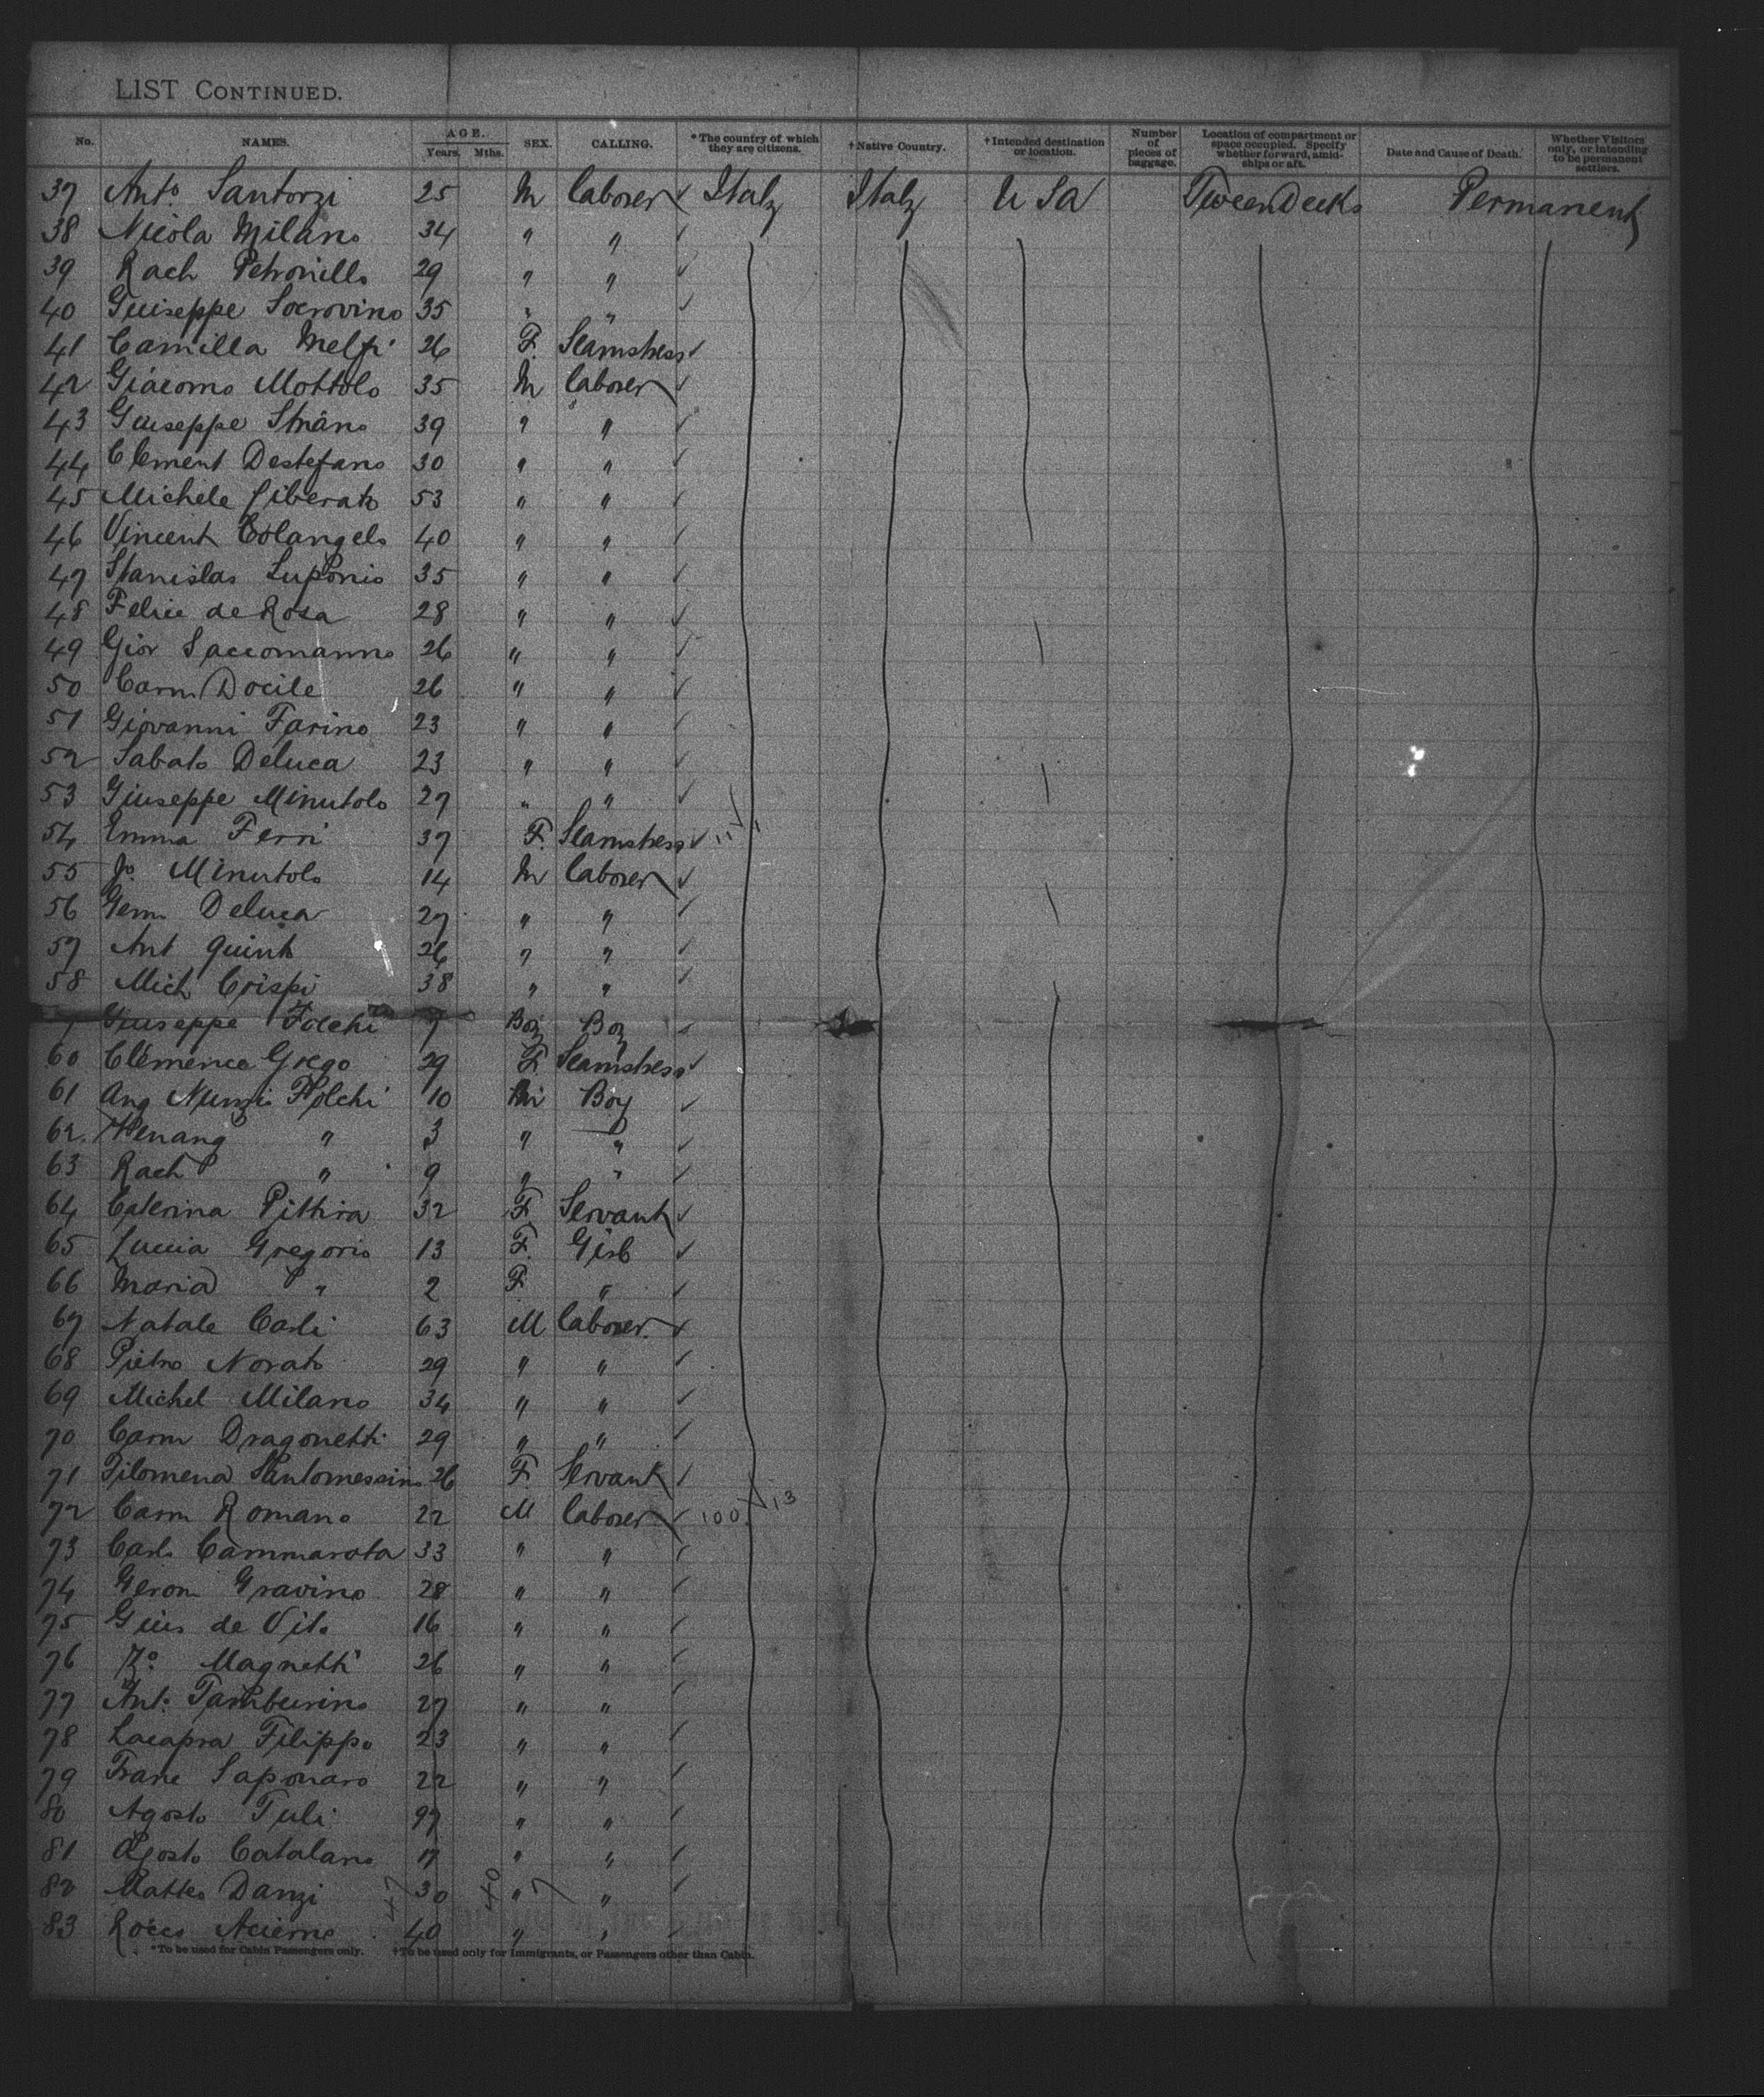 LIST CONTINUED.
No. NAMES. AGE. Years. Mths. SEX. CALLING. *The country of which they are citizens. †Native Country. †Intended destination or location. Number of pieces of baggage. Location of compartment or space occupied. Specify whether forward, amidships or aft. Date and Cause of Death. Whether Visitors only, or intending to be permanent settlers.
37 Anto. Santorzi 25 M laborer Italy Italy U Sa TweenDecks Permanent
38 Nicola Milano 34 " "
39 Rach Petronillo 29 " "
40 Guiseppe Socrovino 35 " "
41 Camilla Melfi 26 F. Seamstress
42 Giacomo Mottolo 35 M laborer
43 Giuseppe Strano 39 " "
44 Clement Destefano 30 " "
45 Michele Liberato 53 " "
46 Vincent Colangelo 40 " "
47 Stanislas Luponio 35 " "
48 Felice de Rosa 28 " "
49 Giov Saccomanno 26 " "
50 Carm Docile 26 " "
51 Giovanni Farino 23 " "
52 Sabato Deluca 23 " "
53 Giuseppe Minutolo 27 " "
54 Emma Ferri 37 F. Seamstress 11 1
55 Jo. Minutolo 14 M laborer
56 Gem Deluca 27 " "
57 Ant Quinto 26 " "
58 Mich Crispi 38 " "
Giuseppe Folchi 7 Boy Boy
60 Clemence Grego 29 F. Seamstress
61 Ang Nunzio Folchi 10 M Boy
62. " 3 " "
63 Rach " 9 " "
64 Caterina Pittira 32 F Servant
65 Luccia Gregorio 13 F. Girl
66 Maria " 2 F "
67 Natale Carli 63 M laborer
68 Pietro Norato 29 " "
69 Michel Milano 34 " "
70 Carm Dragonetti 29 " "
71 Filomena Santomessino 26 F. Servant
72 Carm Romano 22 M laborer 100 13
73 Carlo Cammarota 33 " "
74 Gerom Gravino 28 " "
75 Gius de Vito 16 " "
76 Magnetti 26 " "
77 Ant. Tamburino 27 " "
78 Lacapra Filippo 23 " "
79 Franc Saponaro 22 " "
80 Agosto Tuli 97 " "
81 Agosto Catalano 17 " "
82 Matteo Danzi 47 30 40 " 7 "
83 Rocco Acierno 40 " "
*To be used for Cabin Passengers only. †To be used only for Immigrants, or Passengers other than Cabin.